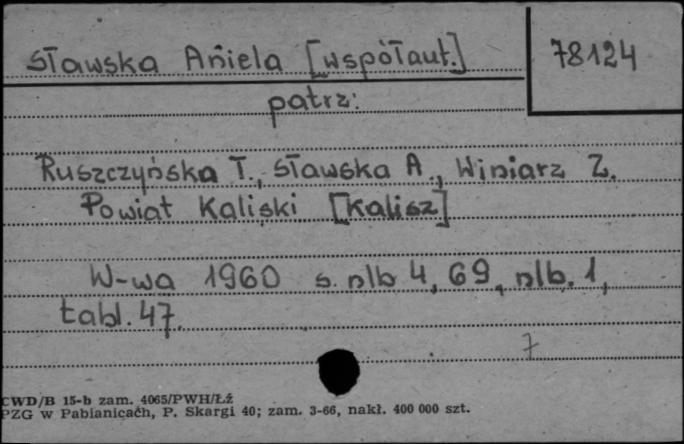 Sławska Aniela [współaut.]
78124
patrz:
Ruszczyńska T., Sławska A., Winiarz Z.
Powiat Kaliski [Kalisz]
W-wa 1960 s. nlb 4, 69, nlb. 1,
tabl. 47.
7
CWD/B 15-b zam. 4065/PWH/Łź
PZG w Pabianicach, P. Skargi 40; zam. 3-66, nakł. 400 000 szt.